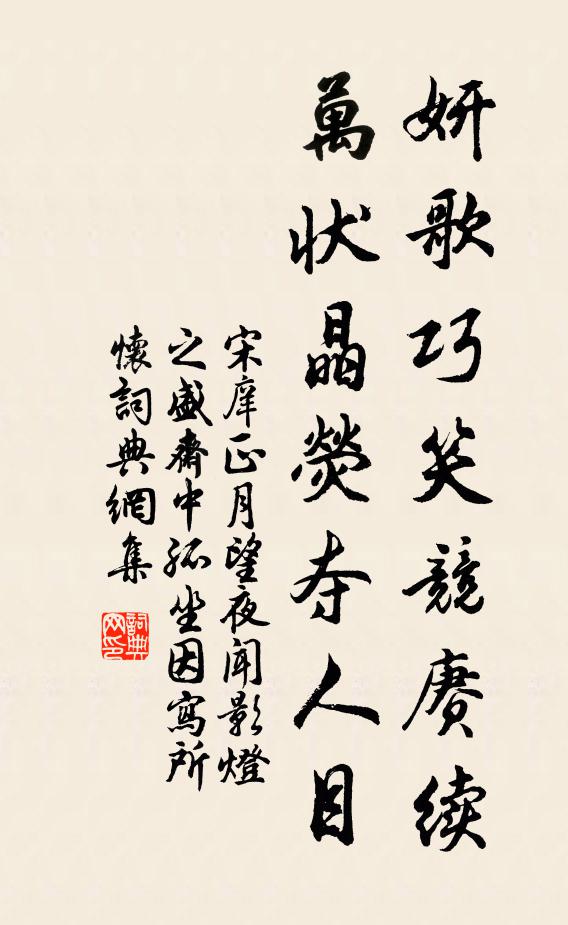 妍歌巧笑競赓续
萬状晶熒夺人目
宋庠正月望夜闻影燈
之盛齋中孤坐因寫所
懷詞典網集
詞典网印